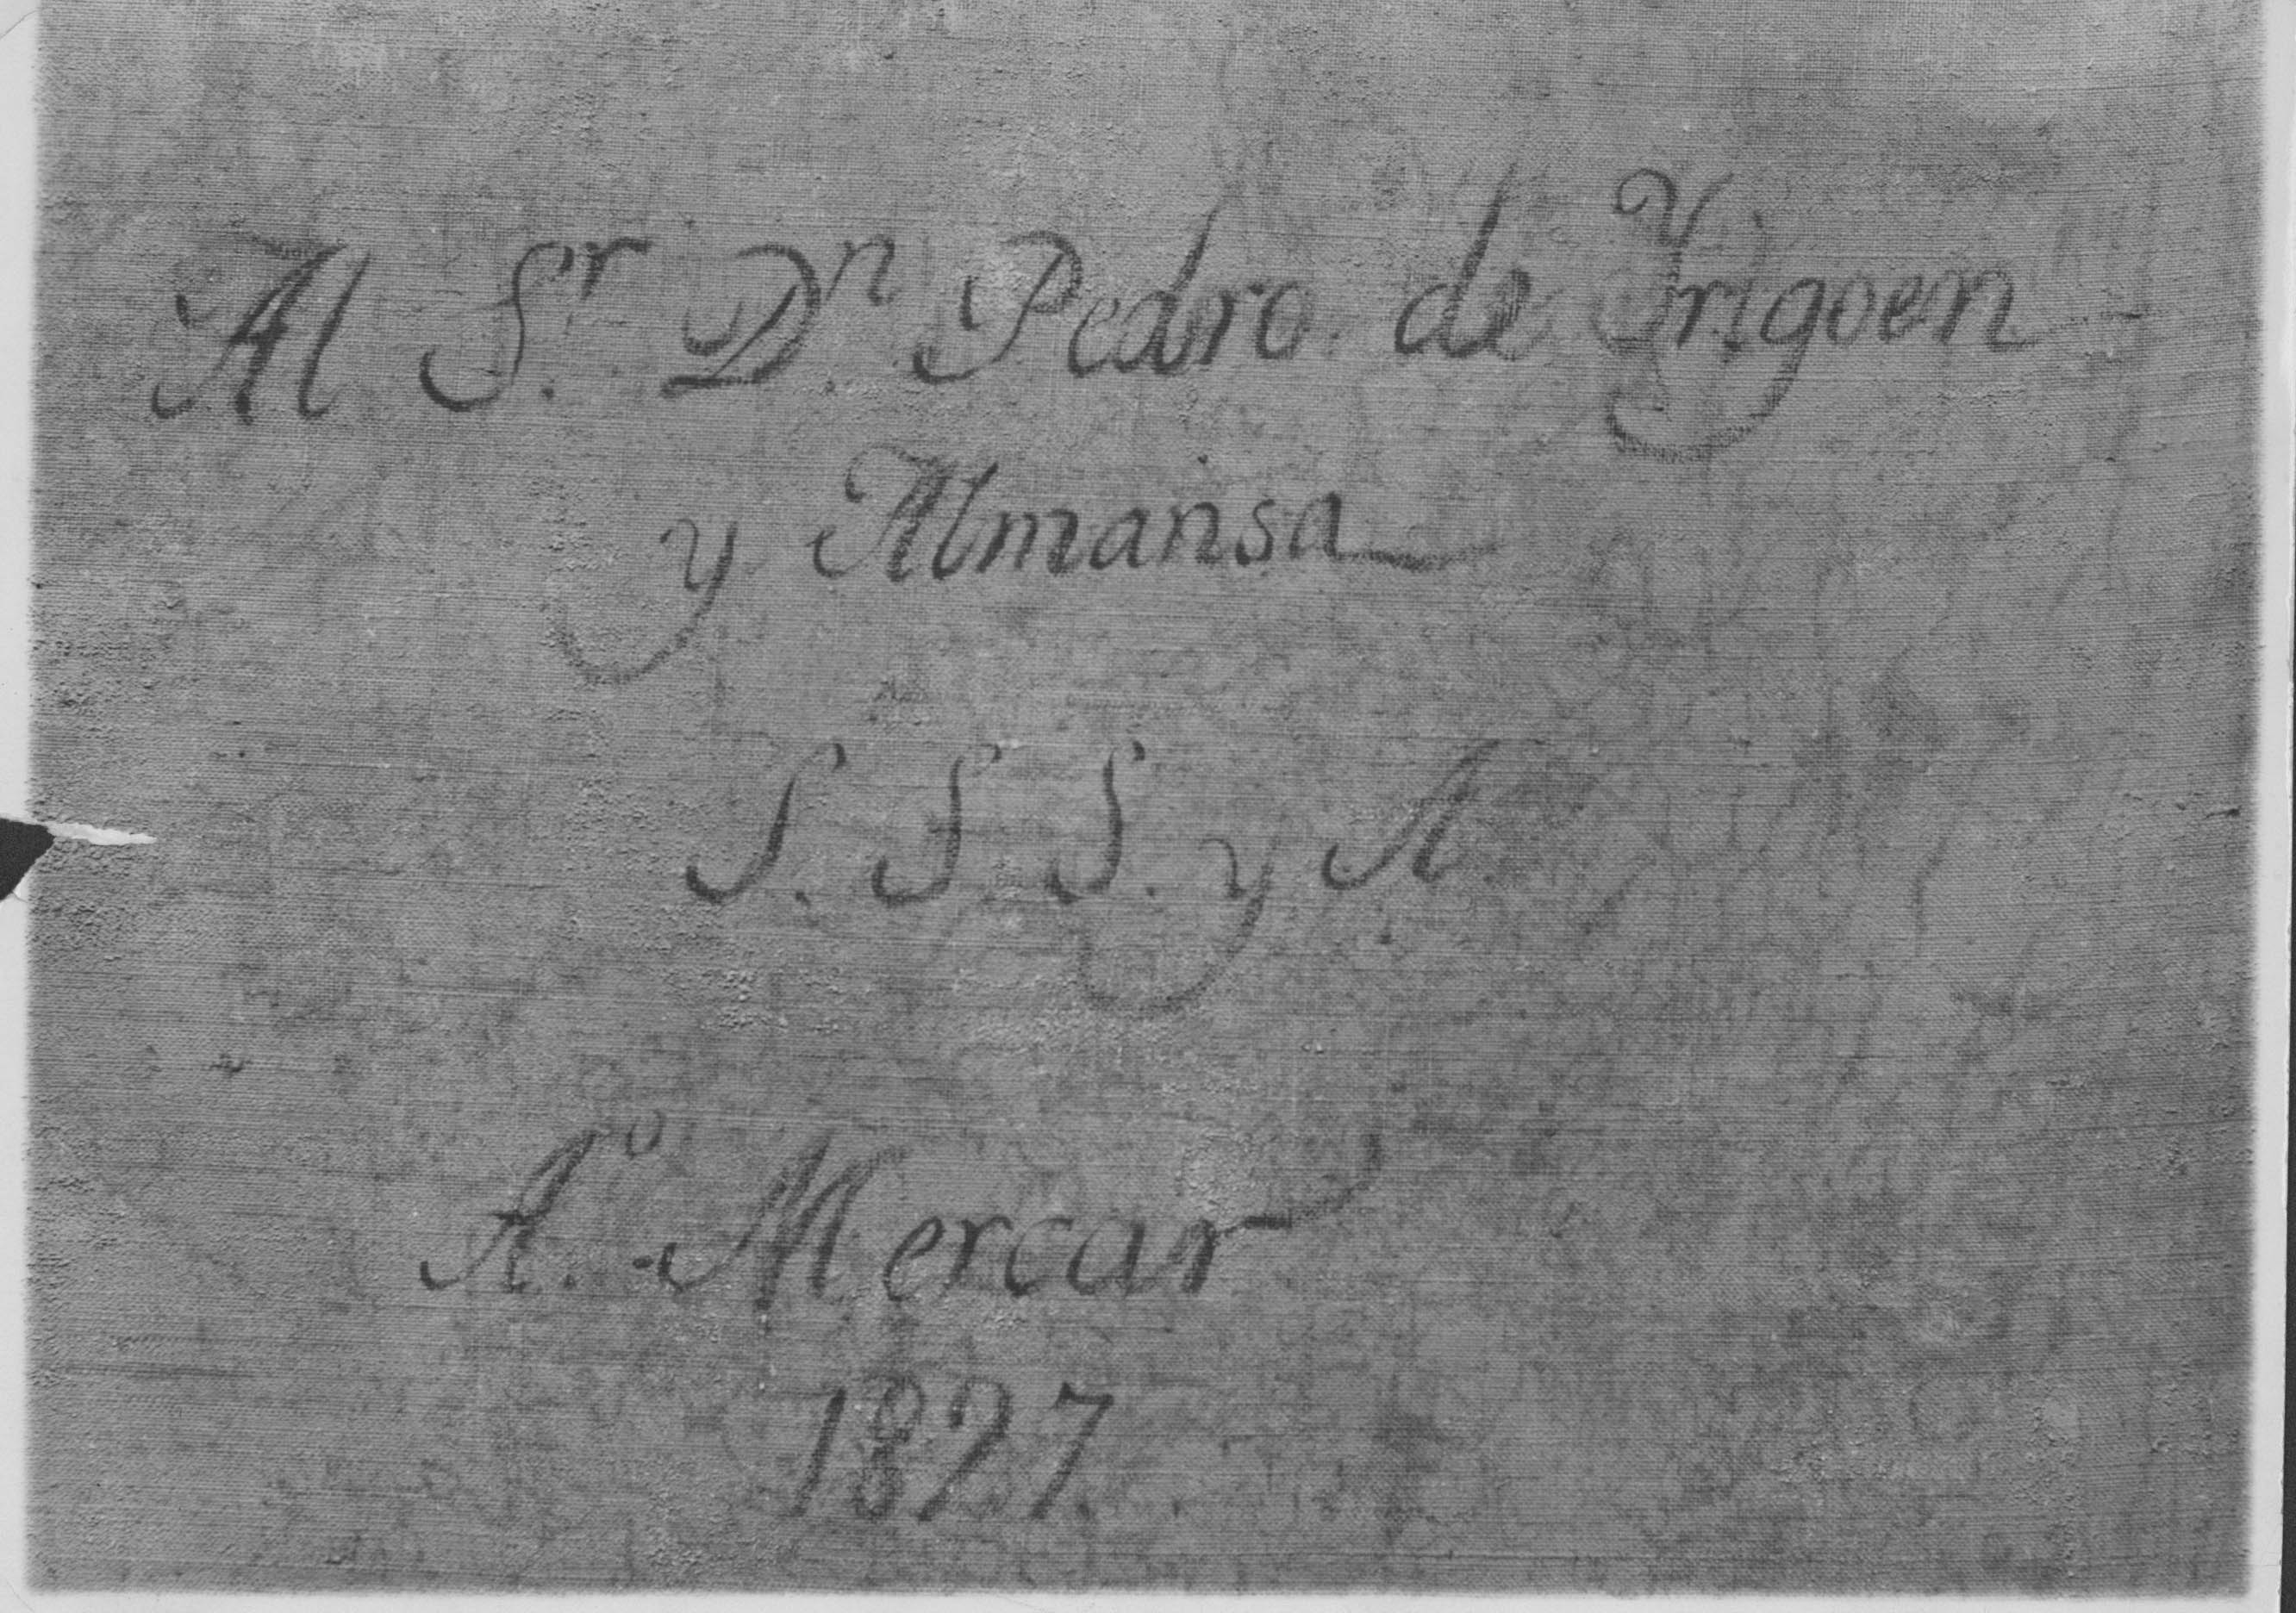 Al S.r D.n Pedro de Yrigoen
y Almansa
S. S S. y A.
A.o Mercar
1827.